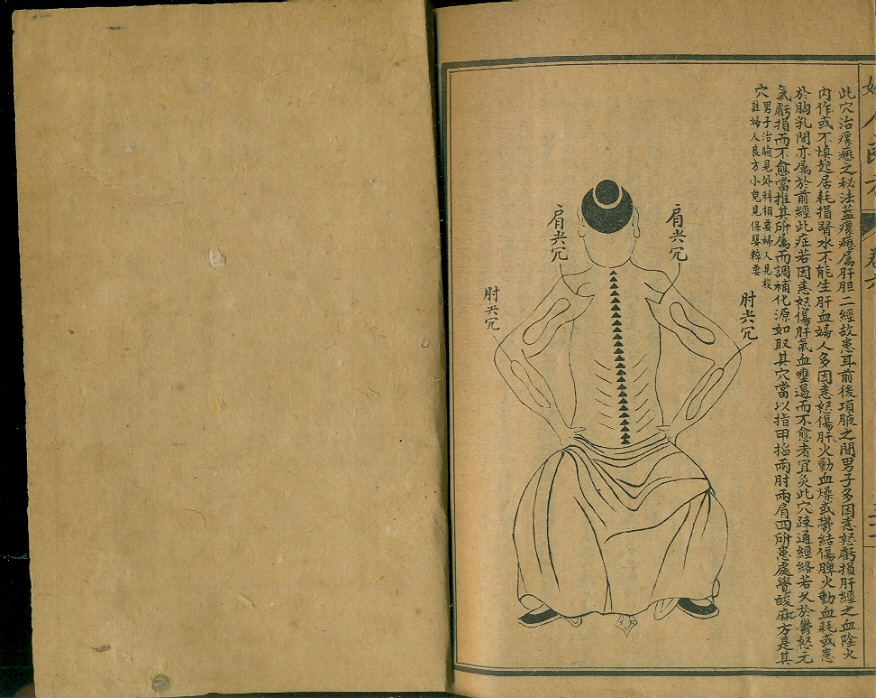 此穴治瘰癧之秘法蓋瘰癧属肝胆二經故患耳前後項腋之間男子多因恚怒虧損肝經之血陰火
内作或不慎起居耗損腎水不能生肝血婦人多因恚怒傷肝火動血燥或鬱結傷脾火動血耗或患
於胸乳間亦属於前經此症若因恚怒傷肝氣血壅遏而不愈者宜灸此穴疎通經絡若久於鬱怒元
氣虧損而不愈當推其所属而調補化源如取其穴當以指甲掐兩肘兩肩四所患處覺酸麻方是其
穴男子治驗見外科樞要婦人見校
註婦人良方小兒見保嬰粹要
肘尖穴
肩尖穴
肩尖穴
肘尖穴